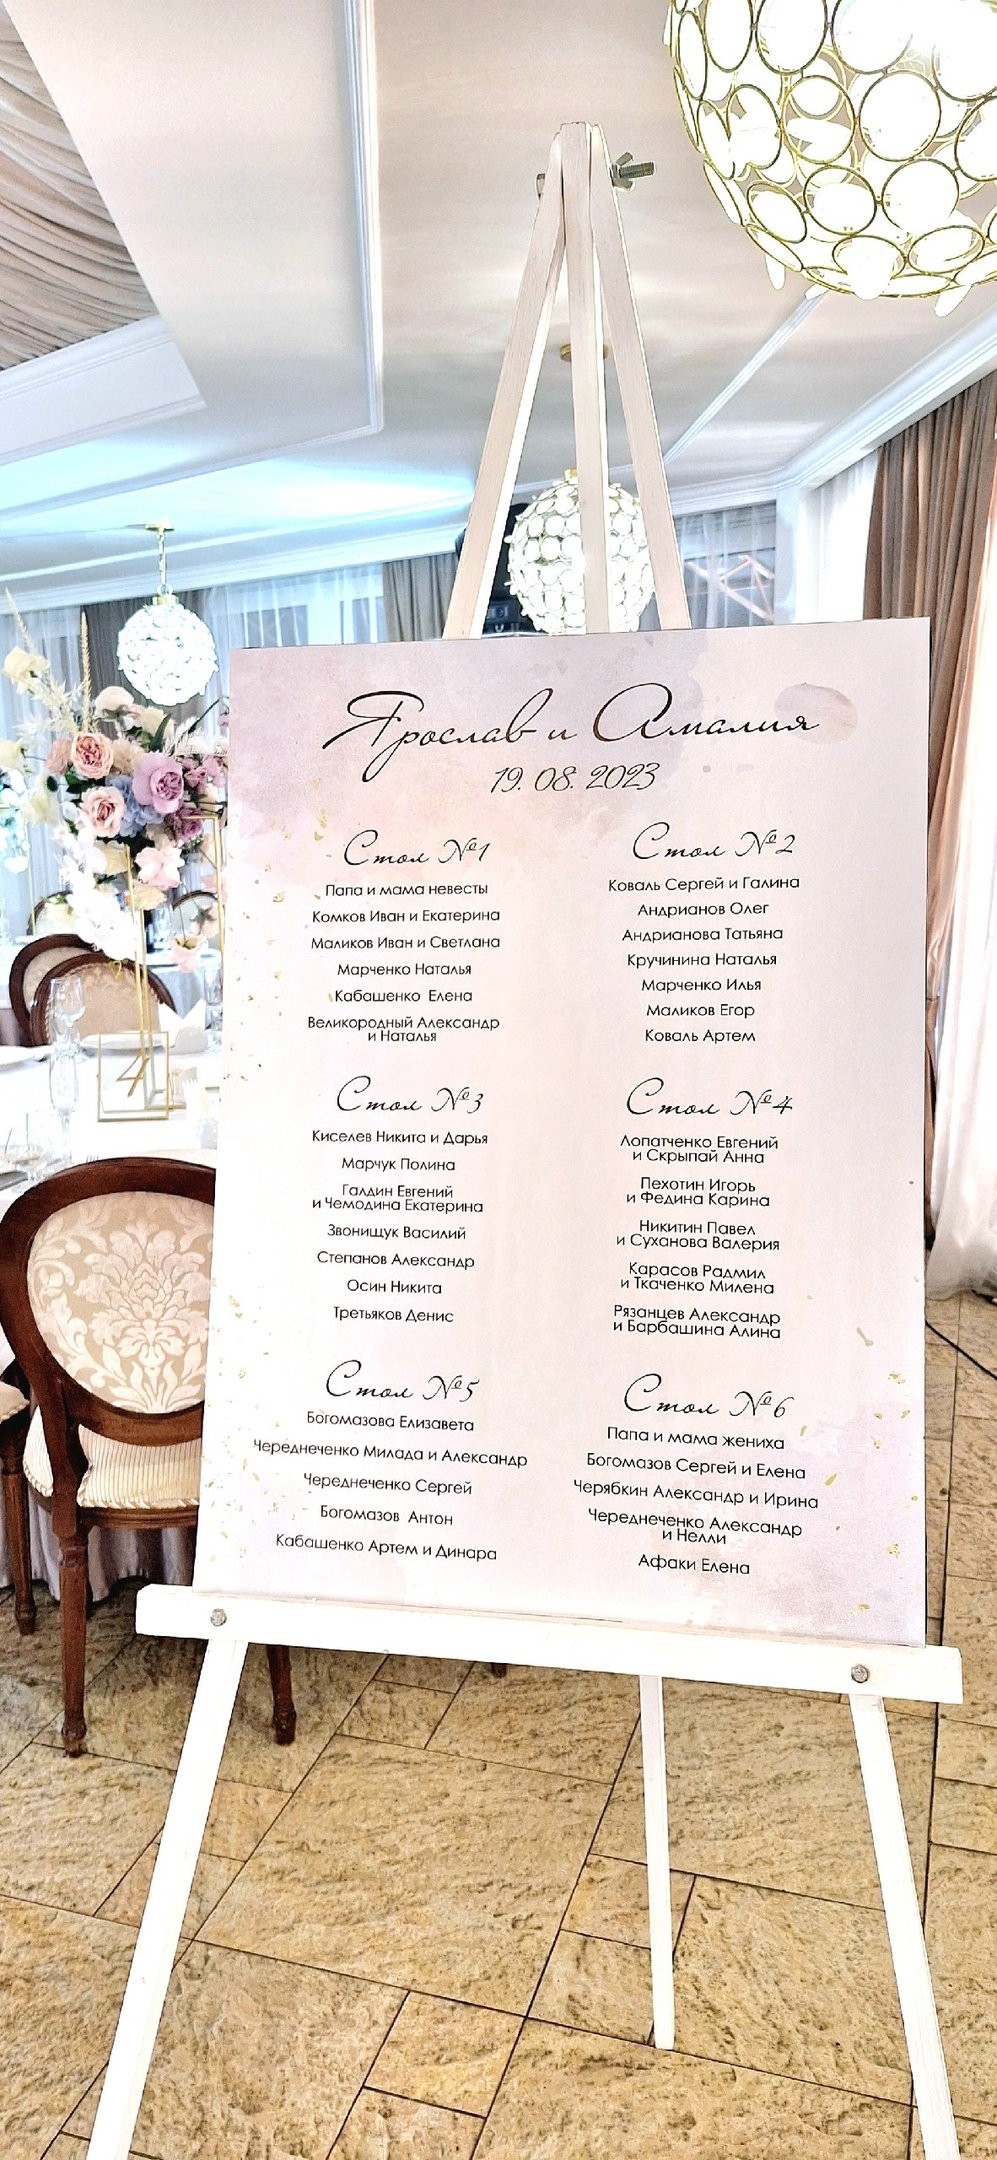 Ярослав и Амалия
19. 08. 2023
Стол №1
Папа и мама невесты
Комков Иван и Екатерина
Маликов Иван и Светлана
Марченко Наталья
Кабашенко Елена
Великородный Александр
и Наталья
Стол №2
Коваль Сергей и Галина
Андрианов Олег
Андрианова Татьяна
Кручинина Наталья
Марченко Илья
Маликов Егор
Коваль Артем
Стол №3
Киселев Никита и Дарья
Марчук Полина
Галдин Евгений
и Чемодина Екатерина
Звонищук Василий
Степанов Александр
Осин Никита
Третьяков Денис
Стол №4
Лопатченко Евгений
и Скрыпай Анна
Пехотин Игорь
и Федина Карина
Никитин Павел
и Суханова Валерия
Карасов Радмил
и Ткаченко Милена
Рязанцев Александр
и Барбашина Алина
Стол №5
Богомазова Елизавета
Чередниченко Милада и Александр
Чередниченко Сергей
Богомазов Антон
Кабашенко Артем и Динара
Стол №6
Папа и мама жениха
Богомазов Сергей и Елена
Черябкин Александр и Ирина
Череднеченко Александр
и Нелли
Афаки Елена
4